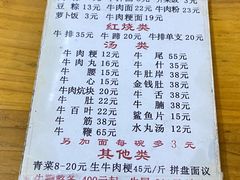 豆 粽 13元 牛肉面 22元 牛肉粉 23元
萝卜饭 3元 牛肉粳面 19元
红烧类
牛 排 35元 牛 蹄 20元 牛排单支 20元
汤 类
牛肉粳 12元 牛 尾 55元
牛肉丸 16元 牛 舌 35元
牛 腰 32元 牛肚岸 38元
牛 心 15元 金钱肚 38元
牛肉炕块 20元 牛肚肉 38元
牛 肚 22元 牛肚梗 38元
牛百叶 22元 牛 腩 28元
牛 筋 38元 鲨鱼片 15元
牛 鞭 65元 水丸汤 12元
另 加 面 每 碗 多 3 元
其他类
青菜8-20元 生牛肉粳45元/斤 拼盘面议